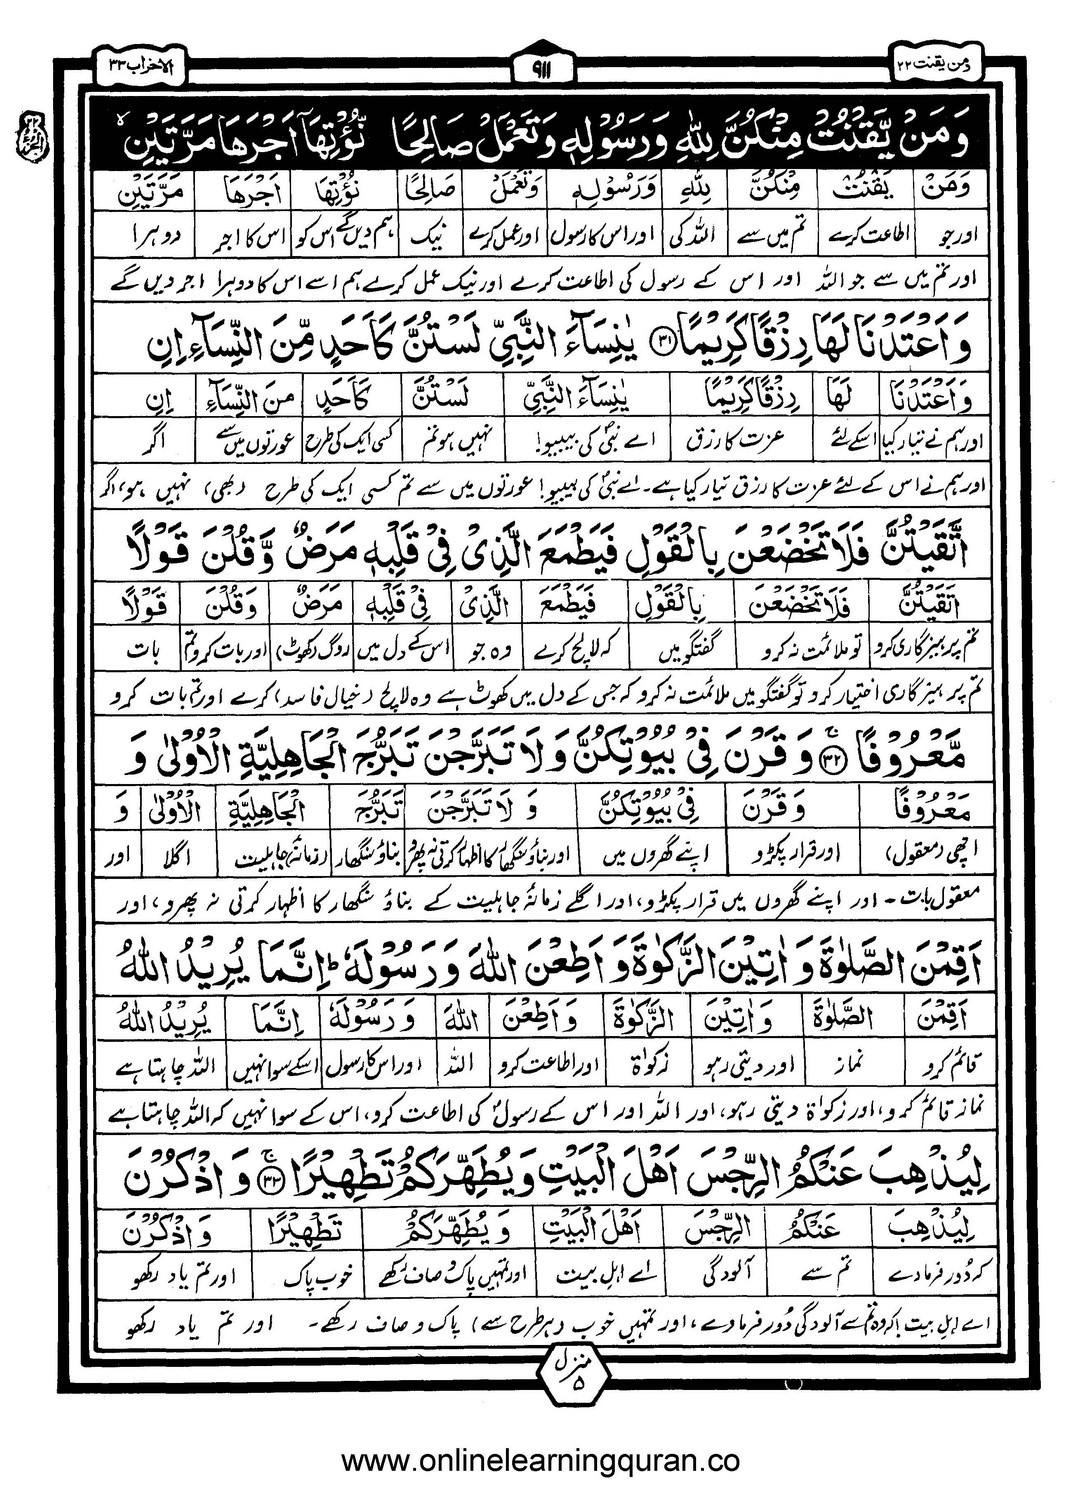 الاحزاب ۳۳
۹۱۱
ومن یقنت ۲۲
وَ مَنْ يَّقْنُتْ مِنْكُنَّ لِلّٰهِ وَ رَسُوْلِهٖ وَ تَعْمَلْ صَالِحًا نُّؤْتِهَاۤ اَجْرَهَا مَرَّتَيْنِۙ
وَمَنْ يَقْنُتْ مِنْكُنَّ لِلّٰهِ وَرَسُوْلِهٖ وَتَعْمَلْ صَالِحًا نُؤْتِهَا اَجْرَهَا مَرَّتَيْنِ
اور جو اطاعت کرے تم میں سے اللہ کی اور اس کا رسول اور عمل کرے نیک ہم دیں گے اس کو اس کا اجر دوہرا
اور تم میں سے جو اللہ اور اس کے رسول کی اطاعت کرے اور نیک عمل کرے ہم اسے اس کا دوہرا اجر دیں گے
وَ اَعْتَدْنَا لَهَا رِزْقًا كَرِيْمًا ۳۱ يٰنِسَآءَ النَّبِيِّ لَسْتُنَّ كَاَحَدٍ مِّنَ النِّسَآءِ اِنِ
وَاَعْتَدْنَا لَهَا رِزْقًا كَرِيْمًا يٰنِسَآءَ النَّبِيِّ لَسْتُنَّ كَاَحَدٍ مِنَ النِّسَآءِ اِنِ
اور ہم نے تیار کیا اسکے لئے عزت کا رزق اے نبیؐ کی بیبیو! نہیں ہو تم کسی ایک کی طرح عورتوں میں سے اگر
اور ہم نے اس کے لئے عزت کا رزق تیار کیا ہے۔ اے نبیؐ کی بیبیو! عورتوں میں سے تم کسی ایک کی طرح (بھی) نہیں ہو، اگر
اتَّقَيْتُنَّ فَلَا تَخْضَعْنَ بِالْقَوْلِ فَيَطْمَعَ الَّذِيْ فِيْ قَلْبِهٖ مَرَضٌ وَّ قُلْنَ قَوْلًا
اتَّقَيْتُنَّ فَلَا تَخْضَعْنَ بِالْقَوْلِ فَيَطْمَعَ الَّذِيْ فِيْ قَلْبِهٖ مَرَضٌ وَقُلْنَ قَوْلًا
تم پرہیزگاری کرو تو ملائمت نہ کرو گفتگو میں کہ لالچ کرے وہ جو اس کے دل میں روگ (کھوٹ) اور بات کرو تم بات
تم پرہیزگاری اختیار کرو تو گفتگو میں ملائمت نہ کرو کہ جس کے دل میں کھوٹ ہے وہ لالچ (خیال فاسد) کرے اور تم بات کرو
مَّعْرُوْفًا ۳۲ وَ قَرْنَ فِيْ بُيُوْتِكُنَّ وَ لَا تَبَرَّجْنَ تَبَرُّجَ الْجَاهِلِيَّةِ الْاُوْلٰى وَ
مَعْرُوْفًا وَقَرْنَ فِيْ بُيُوْتِكُنَّ وَ لَا تَبَرَّجْنَ تَبَرُّجَ الْجَاهِلِيَّةِ الْاُوْلٰى وَ
اچھی (معقول) اور قرار پکڑو اپنے گھروں میں اور بناؤ سنگھار کا اظہار کرتی نہ پھرو بناؤ سنگھار (زمانۂ) جاہلیت اگلا اور
معقول بات۔ اور اپنے گھروں میں قرار پکڑو، اور اگلے زمانۂ جاہلیت کے بناؤ سنگھار کا اظہار کرتی نہ پھرو، اور
اَقِمْنَ الصَّلٰوةَ وَ اٰتِيْنَ الزَّكٰوةَ وَ اَطِعْنَ اللّٰهَ وَ رَسُوْلَهٗؕ اِنَّمَا يُرِيْدُ اللّٰهُ
اَقِمْنَ الصَّلٰوةَ وَاٰتِيْنَ الزَّكٰوةَ وَاَطِعْنَ اللّٰهَ وَرَسُوْلَهٗ اِنَّمَا يُرِيْدُ اللّٰهُ
قائم کرو نماز اور دیتی رہو زکوٰۃ اور اطاعت کرو اللہ اور اس کا رسول اسکے سوا نہیں اللہ چاہتا ہے
نماز قائم کرو، اور زکوٰۃ دیتی رہو، اور اللہ اور اس کے رسولؐ کی اطاعت کرو، اس کے سوا نہیں کہ اللہ چاہتا ہے
لِيُذْهِبَ عَنْكُمُ الرِّجْسَ اَهْلَ الْبَيْتِ وَ يُطَهِّرَكُمْ تَطْهِيْرًا ۳۳ وَ اذْكُرْنَ
لِيُذْهِبَ عَنْكُمُ الرِّجْسَ اَهْلَ الْبَيْتِ وَيُطَهِّرَكُمْ تَطْهِيْرًا وَاذْكُرْنَ
کہ دُور فرما دے تم سے آلودگی اے اہلِ بیت اور تمہیں پاک و صاف رکھے خوب پاک اور تم یاد رکھو
اے اہلِ بیت! کہ وہ تم سے آلودگی دُور فرما دے، اور تمہیں خوب (ہر طرح سے) پاک و صاف رکھے۔ اور تم یاد رکھو
منزل ۵
www.onlinelearningquran.co